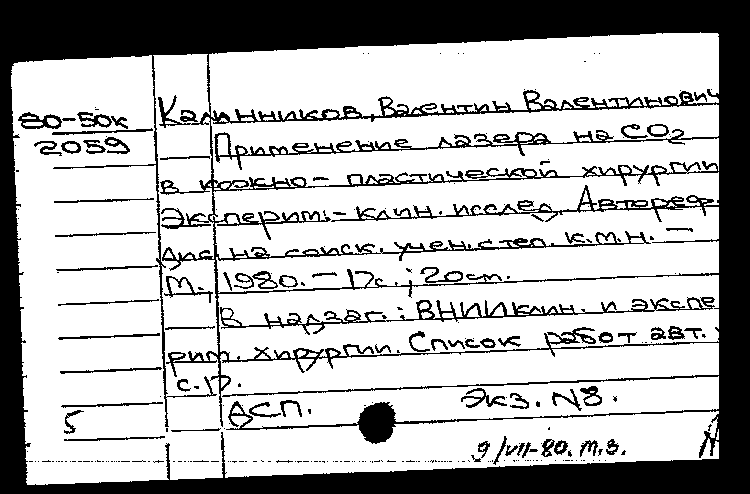 80-50к
2059
Калинников, Валентин Валентинович
Применение лазера на CO2
в кожно-пластической хирургии
Эксперим.-клин. исслед. Автореф.
дис. на соиск. учен. степ. к.м.н. —
М., 1980. — 17с.; 20см.
В надзаг.: ВНИИ клин. и экспе
рим. хирургии. Список работ авт.
с. 17.
5
ДСП. Экз. N8.
9/VII-80. т.з.